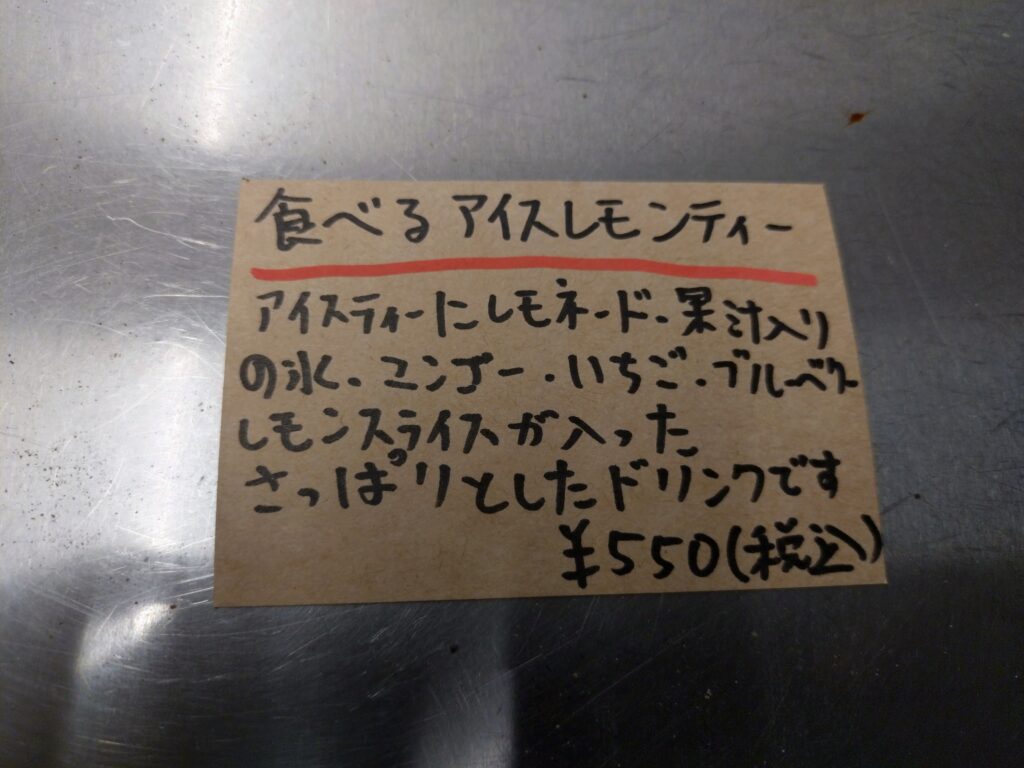 食べるアイスレモンティー
アイスティーにレモネード・果汁入り
の氷・マンゴー・いちご・ブルーベリー
レモンスライスが入った
さっぱりとしたドリンクです
¥550(税込)